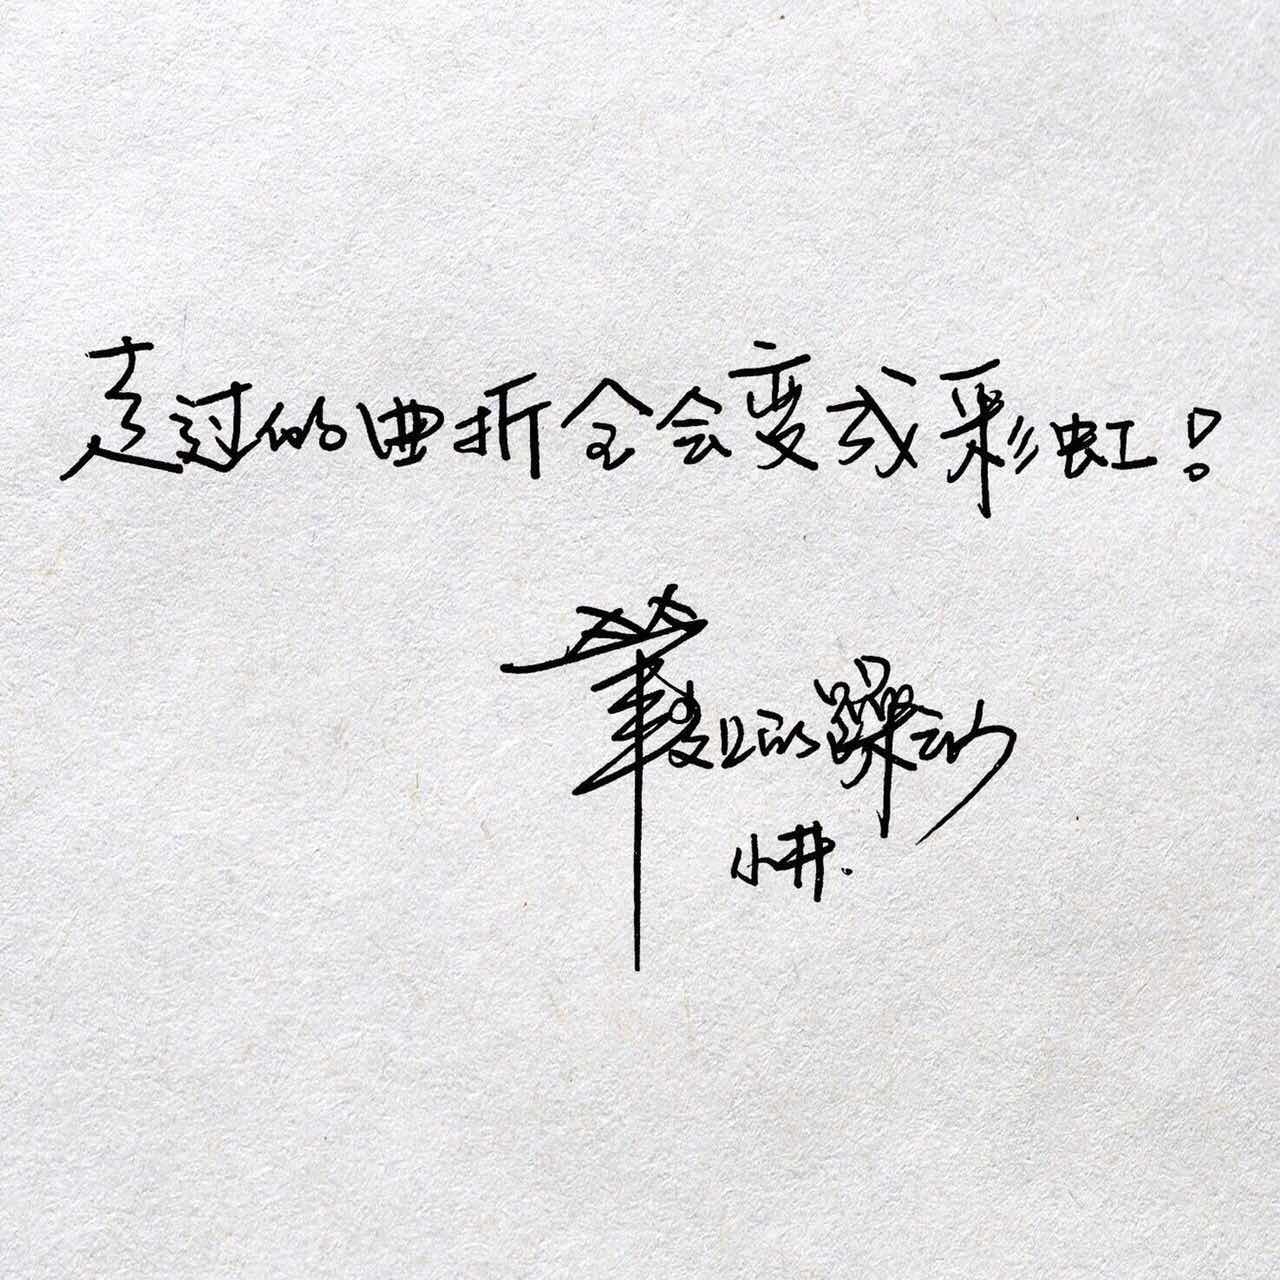 走过的曲折全会变成彩虹！
夏日的躁动
小井.